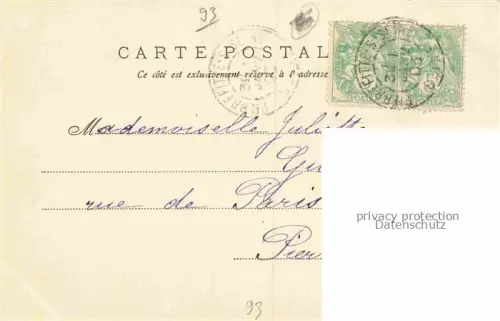 93
CARTE POSTAL
Ce côté est exclusivement réservé à l'adresse
Mademoiselle Juliette
Gu
rue de Paris
Pier
privacy protection
Datenschutz
93